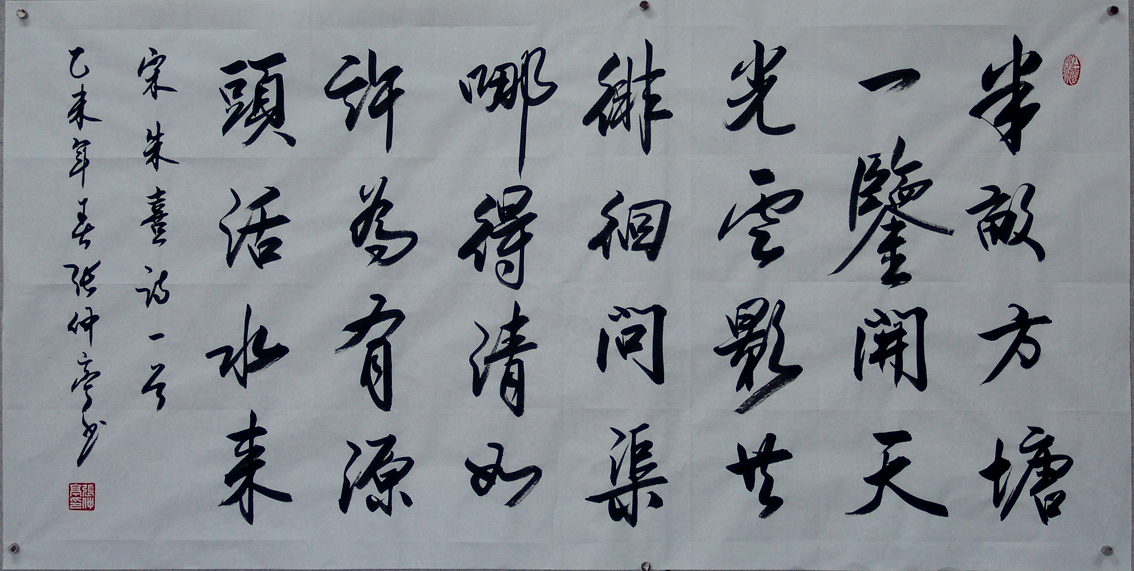 半敵方塘
一鑒開天
光雲影共
徘徊問渠
哪得清如
許為有源
頭活水来
宋朱喜诗一首
乙未年春张仲亭书
張仲亭印